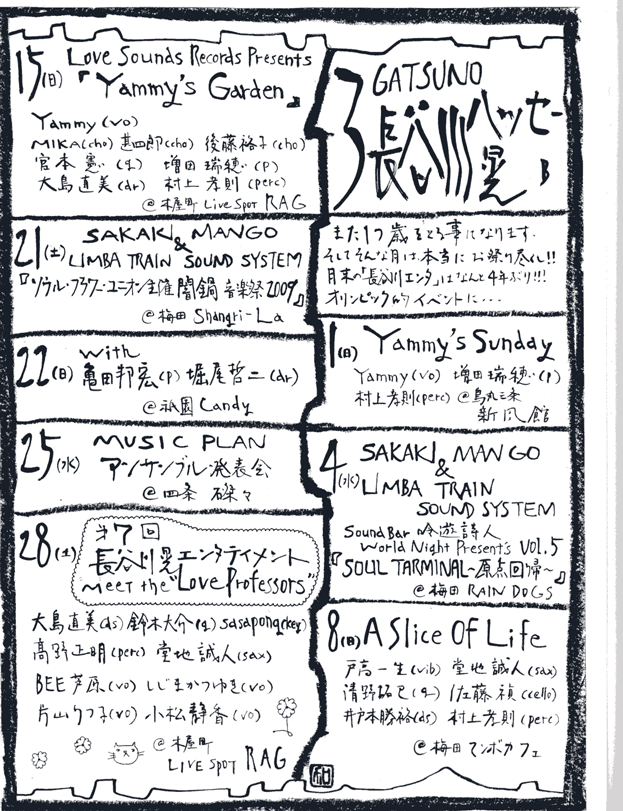 3 GATSUNO
長谷川ハッセー晃 B
また1つ歳をとる事になります。
そしてそんな月は本当にお祭り尽くし!!
月末の「長谷川エンタ」はなんと4年ぶり!!!
オリンピック的イベントに・・・
1(日) Yammy's Sunday
Yammy(vo) 増田瑞穂(p)
村上孝則(perc) @烏丸三条
新風館
4(水) SAKAKI MANGO
&
LIMBA TRAIN
SOUND SYSTEM
Sound Bar 吟遊詩人
World Night Presents Vol.5
『SOUL TARMINAL〜原点回帰〜』
@梅田 RAIN DOGS
8(日) A Slice Of Life
戸高一生(vib) 堂地誠人(sax)
清野拓巳(g) 佐藤禎(cello)
井戸本勝裕(ds) 村上孝則(perc)
@梅田 マンボカフェ
15(日) Love Sounds Records Presents
『Yammy's Garden』
Yammy(vo)
MIKA(cho) 甚四郎(cho) 後藤裕子(cho)
宮本憲(g) 増田瑞穂(p)
大島直美(dr) 村上孝則(perc)
@木屋町 Live Spot RAG
21(土) SAKAKI MANGO
&
LIMBA TRAIN SOUND SYSTEM
『ソウル・フラワー・ユニオン主催 闇鍋音楽祭2009』
@梅田 Shangri-La
22(日) with
亀田邦宏(p) 堀尾哲二(dr)
@祇園 Candy
25(水) MUSIC PLAN
アンサンブル発表会
@四条 磔々
28(土) 才7回
長谷川晃エンタテイメント
meet the "Love Professors"
大島直美(ds) 鈴木大介(g) sasapong(key)
高野正明(perc) 堂地誠人(sax)
BEE芦原(vo) いじまかつゆき(vo)
片山りつ子(vo) 小松静香(vo)
@木屋町
LIVE SPOT RAG